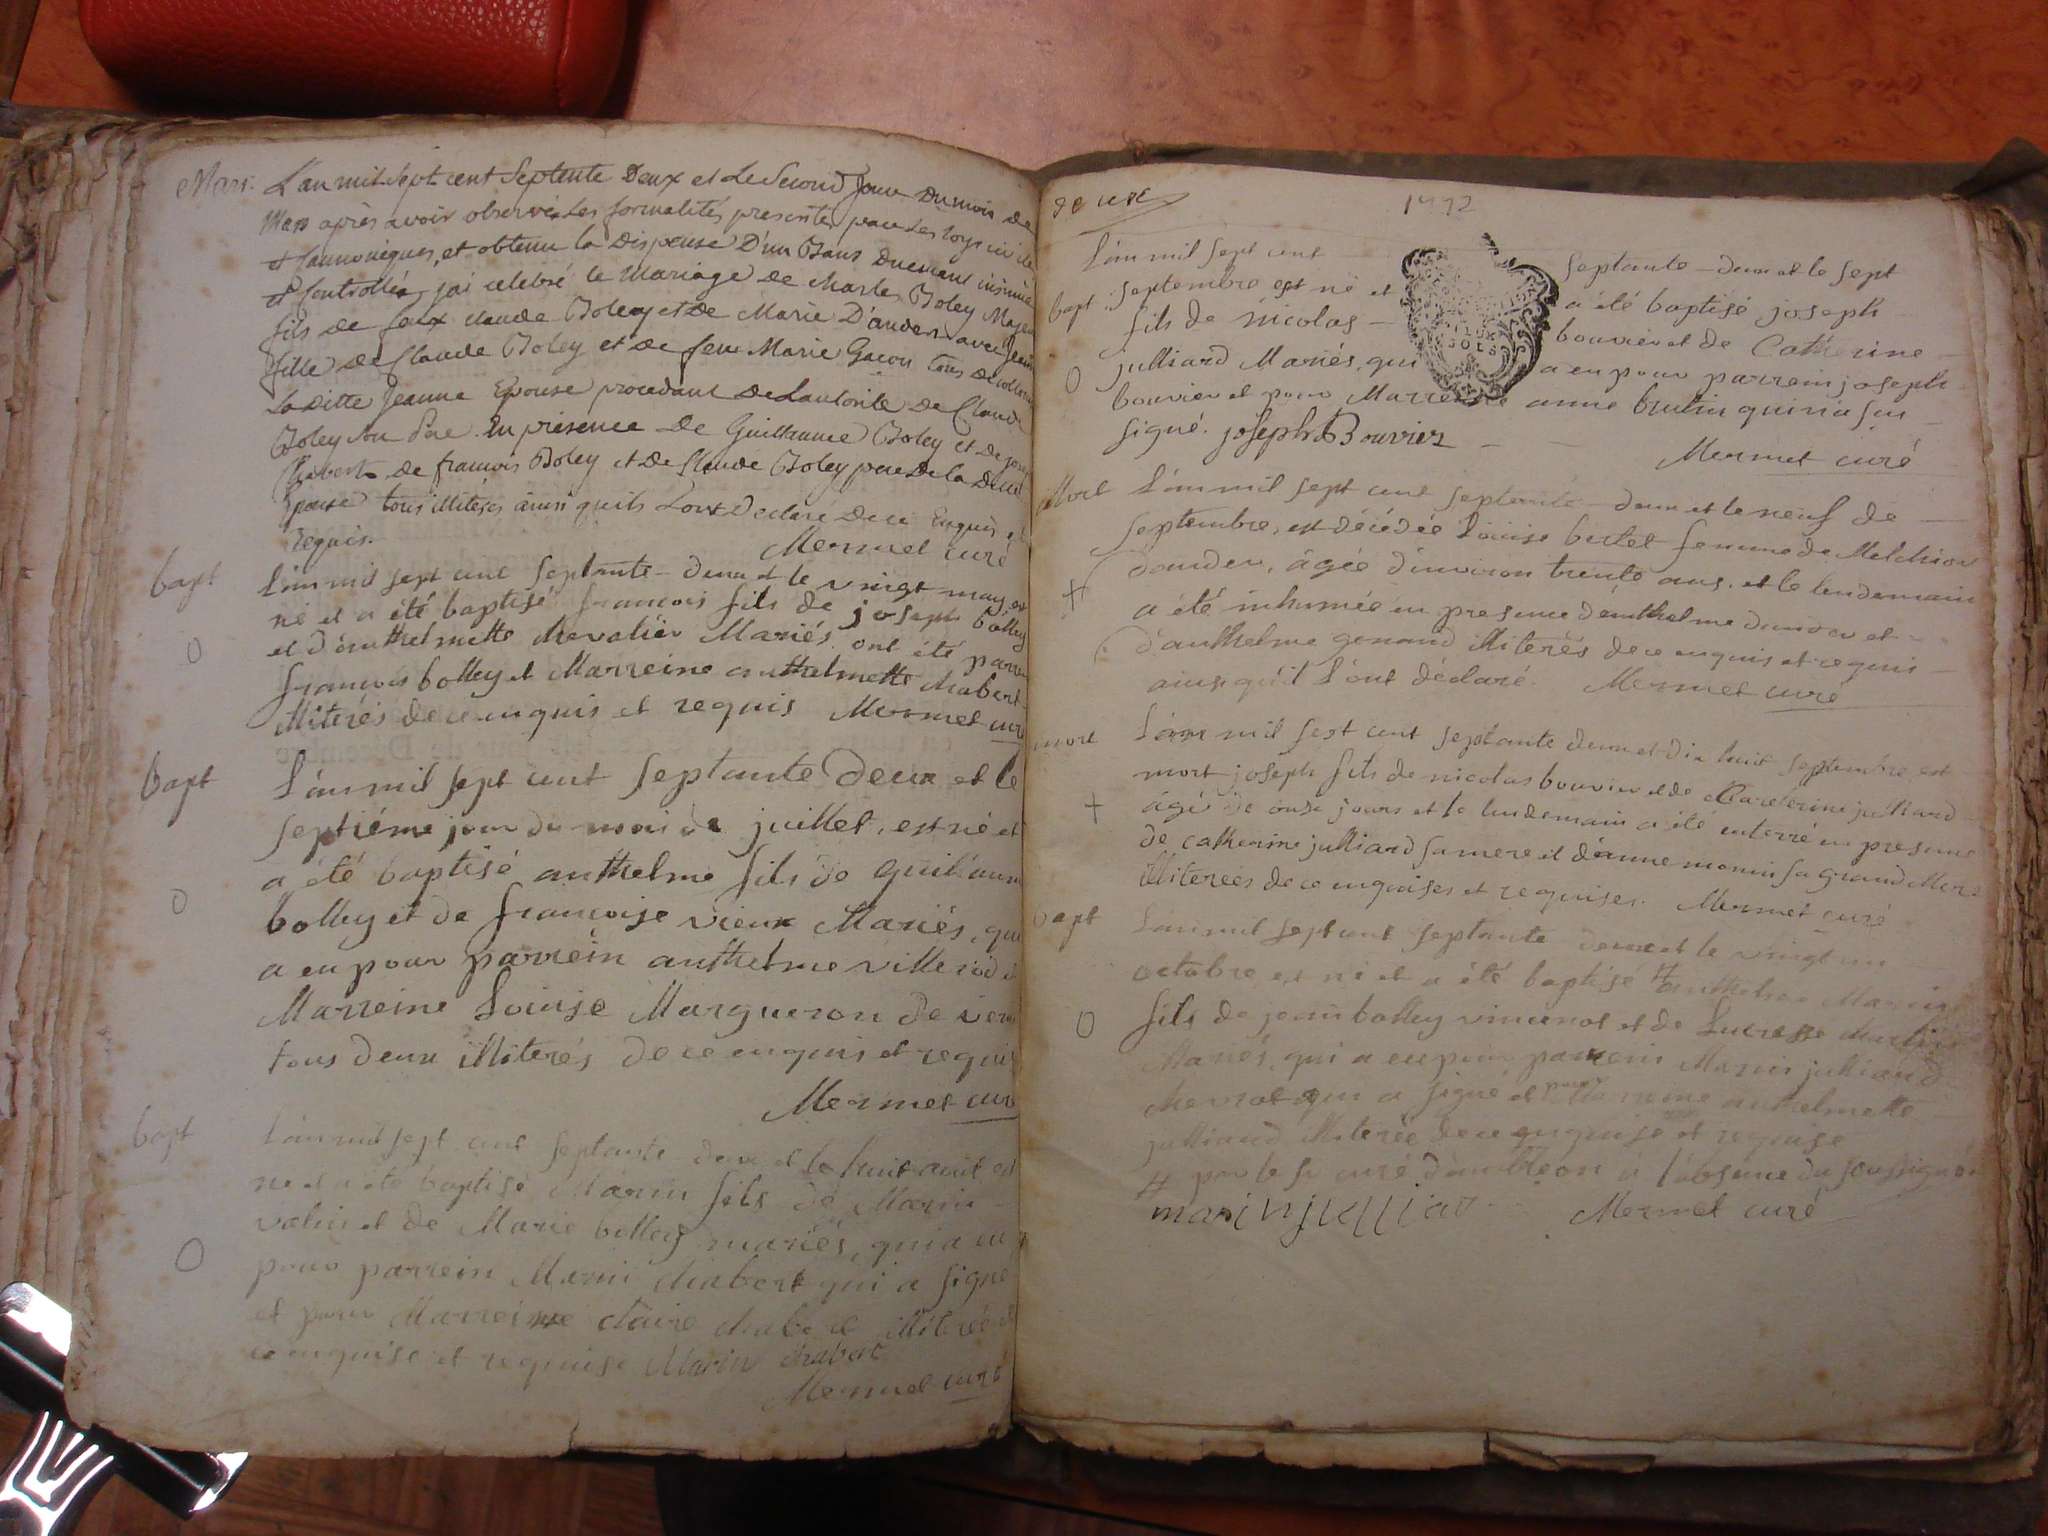 Mari. L'an mil sept cent septente Deux et Le Second Jour Du mois de
Mars après avoir observé Les formalités presentes par Les loys civile
et Cannoniques, et obtenu la Dispense D'un Bans Duement insinué
et Controllée, j'ai celebré le Mariage de Charles Boley Majeur
fils de feux claude Boley et De Marie D'auder avec Jeanne
fille De Claude Boley et de feue Marie Gacon tous De
La Ditte Jeanne Epouse procedant De L'autorite De Claude
Boley son Pere En présence De Guillaume Boley et De
Chabert De francois Boley et De Claude Boley pere De la Ditte
Epouse tous illiterés ainsi qu'ils L'ont Declaré De ce Enquis et
requis. Mermet curé
bapt L'an mil sept cent septante-deux et le vingt may est
né et a été baptisé francois fils de joseph bolley
et d'anthelmette chevalier Mariés. ont été parrein
françois bolley et Marreine anthelmette chabert
illiterés de ce enquis et requis Mermet curé
bapt L'an mil sept cent septante deux et le
septiéme jour du mois de juillet, est né et
0 a été baptisé anthelme fils de guillaume
bolley et de françoise vieux Mariés, qui
a eu pour parrein anthelme villerod et
Marreine Louise Margueron de
tous deux illiterés de ce enquis et requis
Mermet curé
bapt L'an mil sept cent septante-deux et le huit aout est
né et a été baptisé Marin fils de Marin
vatin et de Marie bolley mariés, qui a eu
0 pour parrein Marin chabert qui a signé
et pour Marreine claire chabert illiterée de
ce enquise et requise Marin chabert
Mermet curé
1772
L'an mil sept cent septante-deux et le sept
bapt septembre est né et a été baptisé joseph
fils de nicolas bouvier et de Catherine
0 julliard Mariés, qui a eu pour parrein joseph
bouvier et pour Marreine anne brulin qui n'a su
signé. joseph Bouvier Mermet curé
Mort L'an mil sept cent septante-deux et le neuf de
septembre, est décédée Louise bertet femme de Melchior
dauder, âgée d'environ trente ans, et le lendemain
+ a été inhumée en presence d'anthelme dauder et
d'anthelme gonand illiterés de ce enquis et requis
ainsi qu'il l'ont déclaré. Mermet curé
mort L'an mil sept cent septante deux et dix huit septembre est
mort joseph fils de nicolas bouvier et de Catherine julliard
+ âgé de onze jours et le lendemain a été enterré en presence
de catherine julliard sa mere et d'anne monin sa grand Mere
illiterées de ce enquises et requises. Mermet curé
bapt L'an mil sept cent septante deux et le vingt un
octobre est né et a été baptisé # anthelme Marin
0 fils de jean bolley vincenot et de Lucresse
Mariés, qui a eu pour parrein Marin julliand
qui a signé et pour Marreine anthelmette
julliand illiterée de ce enquise et requise
# par le sr curé d'ambléon à l'absence du soussigné
marin julliao Mermet curé